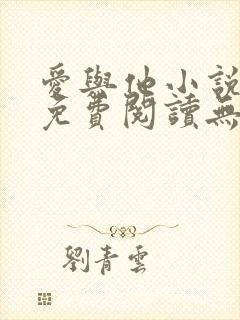 愛與他小說
免費閱讀無
劉青雲